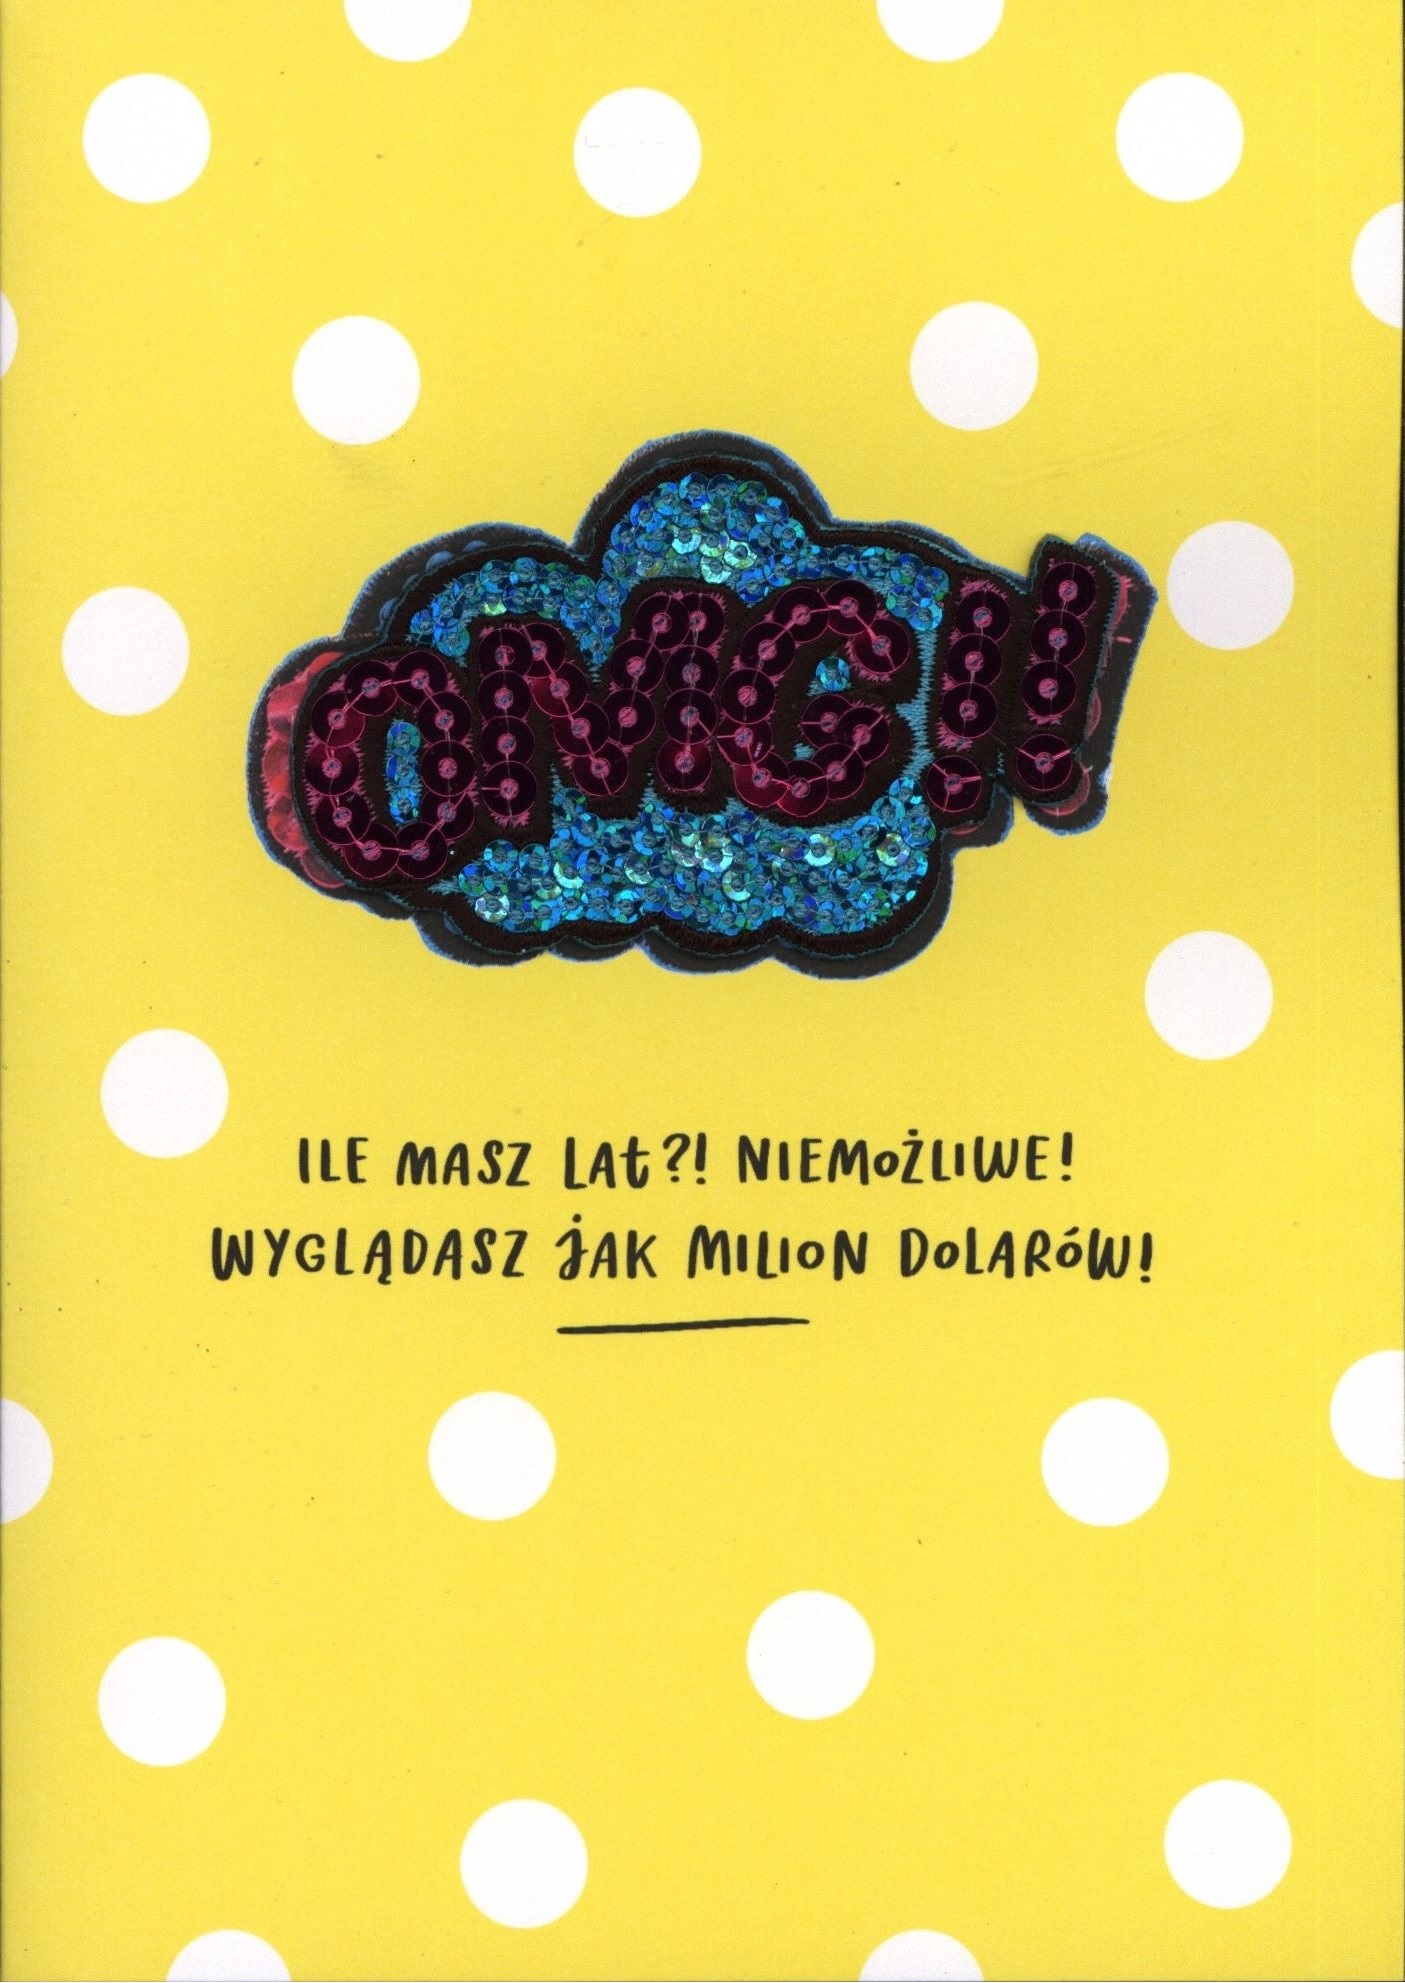 OMG!!
ILE MASZ LAt?! NIEMOŻLIWE!
WYGLĄDASZ JAK MILION DOLARÓW!